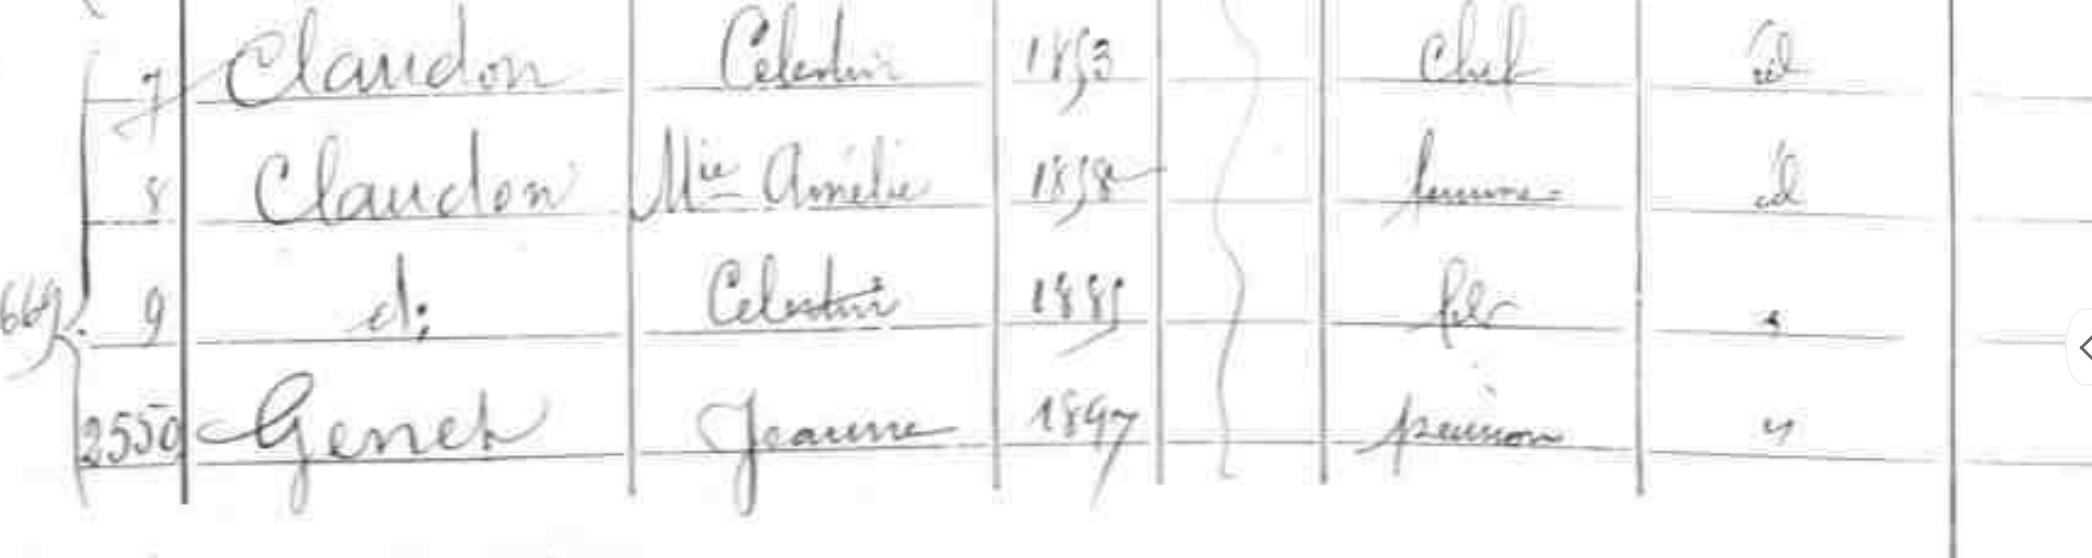 7 Claudon Celestin 1853 Chef id
8 Claudon Mie Amélie 1858 femme id
669 9 d: Celestin 1885 fils "
2550 Genet Jeanne 1897 pension "